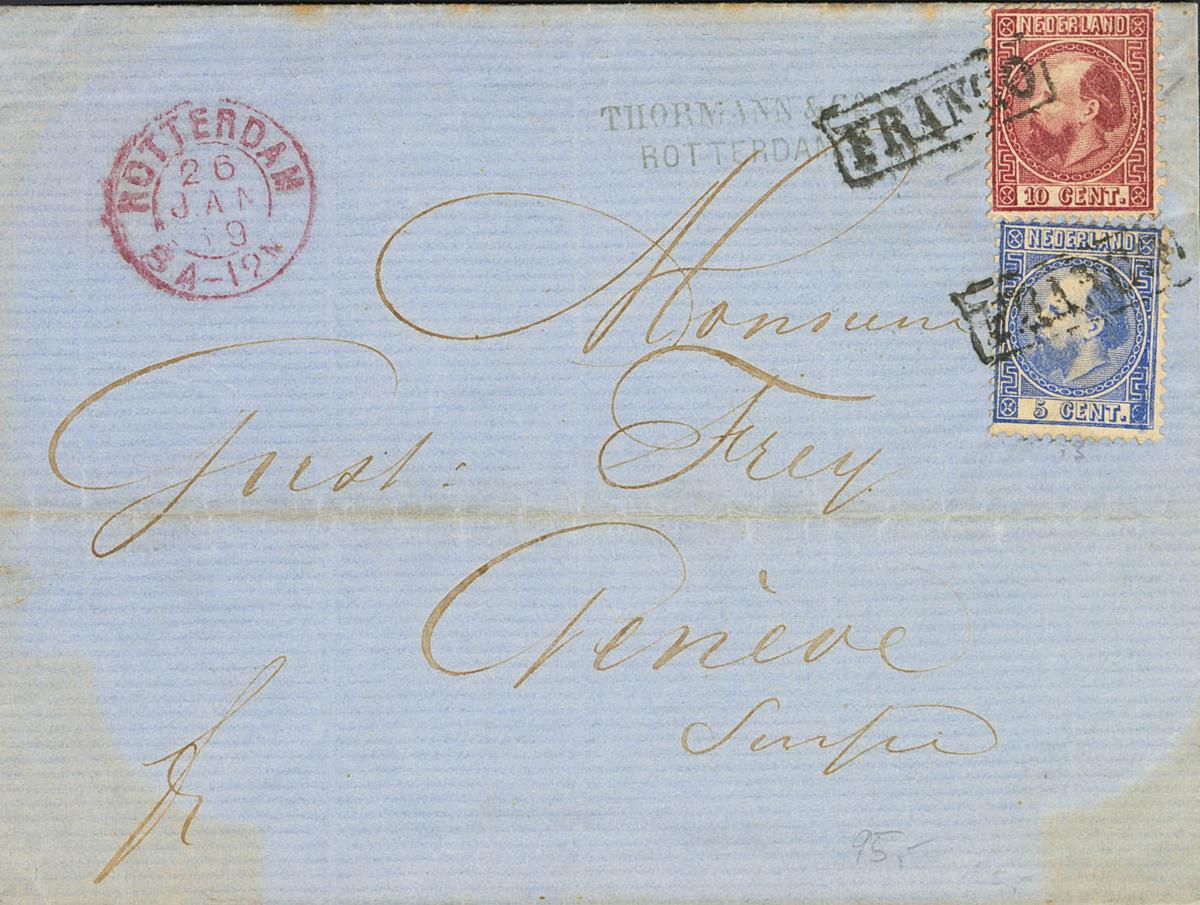 NEDERLAND
10 CENT.
FRANCO
THORMANN & Co
ROTTERDAM
ROTTERDAM
26
JAN
69
8A-12M
NEDERLAND
5 CENT.
FRANCO
Monsieur
Gust: Frey
Genève
Suisse
fr
95,-